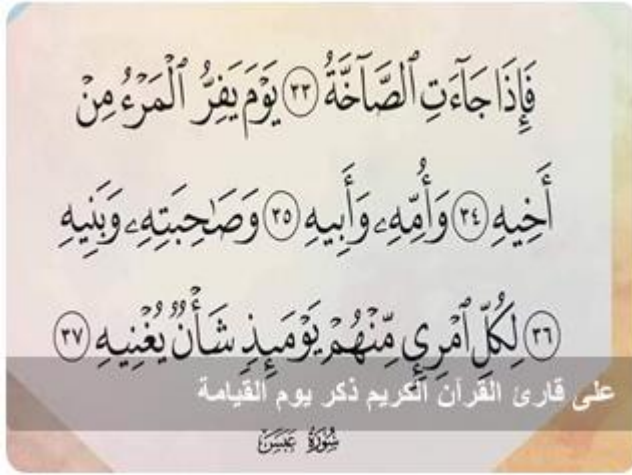 فَإِذَا جَآءَتِ ٱلصَّآخَّةُ ٣٣ يَوْمَ يَفِرُّ ٱلْمَرْءُ مِنْ
أَخِيهِ ٣٤ وَأُمِّهِۦ وَأَبِيهِ ٣٥ وَصَـٰحِبَتِهِۦ وَبَنِيهِ
٣٦ لِكُلِّ ٱمْرِئٍ مِّنْهُمْ يَوْمَئِذٍ شَأْنٌ يُغْنِيهِ ٣٧
على قارئ القرآن الكريم ذكر يوم القيامة
سُورَةُ عَبَسَ